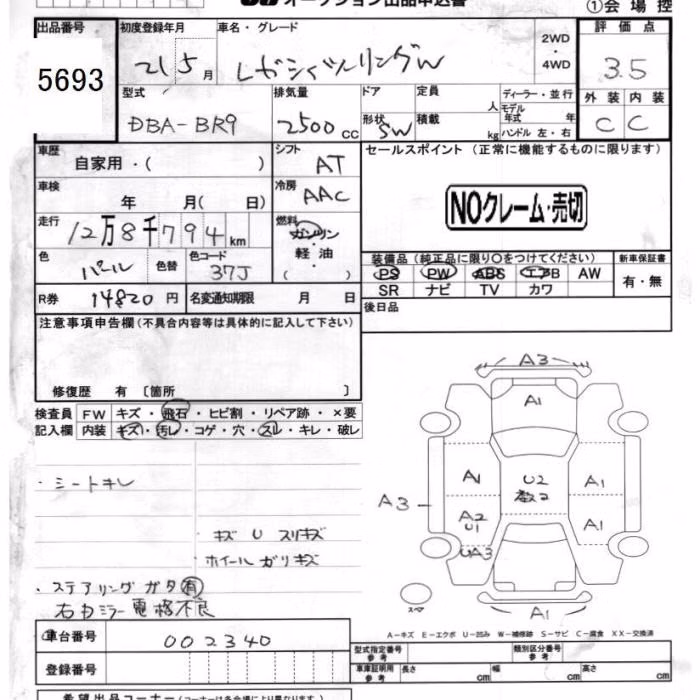 オークション出品申込書
①会場控
出品番号 初度登録年月 車名・グレード 2WD・4WD 評価点
5693 21 5月 レガシィツーリングW 3.5
型式 排気量 ドア 定員 人 ディーラー・並行 外装 内装
DBA-BR9 2500cc 形状 SW 積載 kg モデル年式 年 ハンドル 左・右 C C
車歴 自家用・( ) シフト AT セールスポイント (正常に機能するものに限ります)
車検 年 月(日) 冷房 AAC
NOクレーム・売切
走行 12万8千794km 燃料 ガソリン・軽油・( )
色 パール 色替 色コード 37J
装備品 (純正品に限り○をつけてください) 新車保証書
PS PW ABS エアB AW 有・無
SR ナビ TV カワ
R券 14820円 名変通知期限 月 日
後日品
注意事項申告欄(不具合内容等は具体的に記入して下さい)
修復歴 有 〔箇所 〕
検査員 FW キズ・飛石・ヒビ割・リペア跡・×要
記入欄 内装 キズ・汚レ・コゲ・穴・スレ・キレ・破レ
A3
A1
・シートキレ
A1 U2 A1
A3 A2 U1 A1
キズ U スリキズ
ホイール ガリキズ
UA3
・ステアリング ガタ有
右ドミラー電格不良
スペ
A1
A-キズ E-エクボ U-凹み W-補修跡 S-サビ C-腐食 XX-交換済
車台番号 002340
型式指定番号 参考 類別区分番号 参考
登録番号
車庫証明用 参考 長さ cm 幅 cm 高さ cm
希望出品コーナー(コーナーは各会場により異なります)